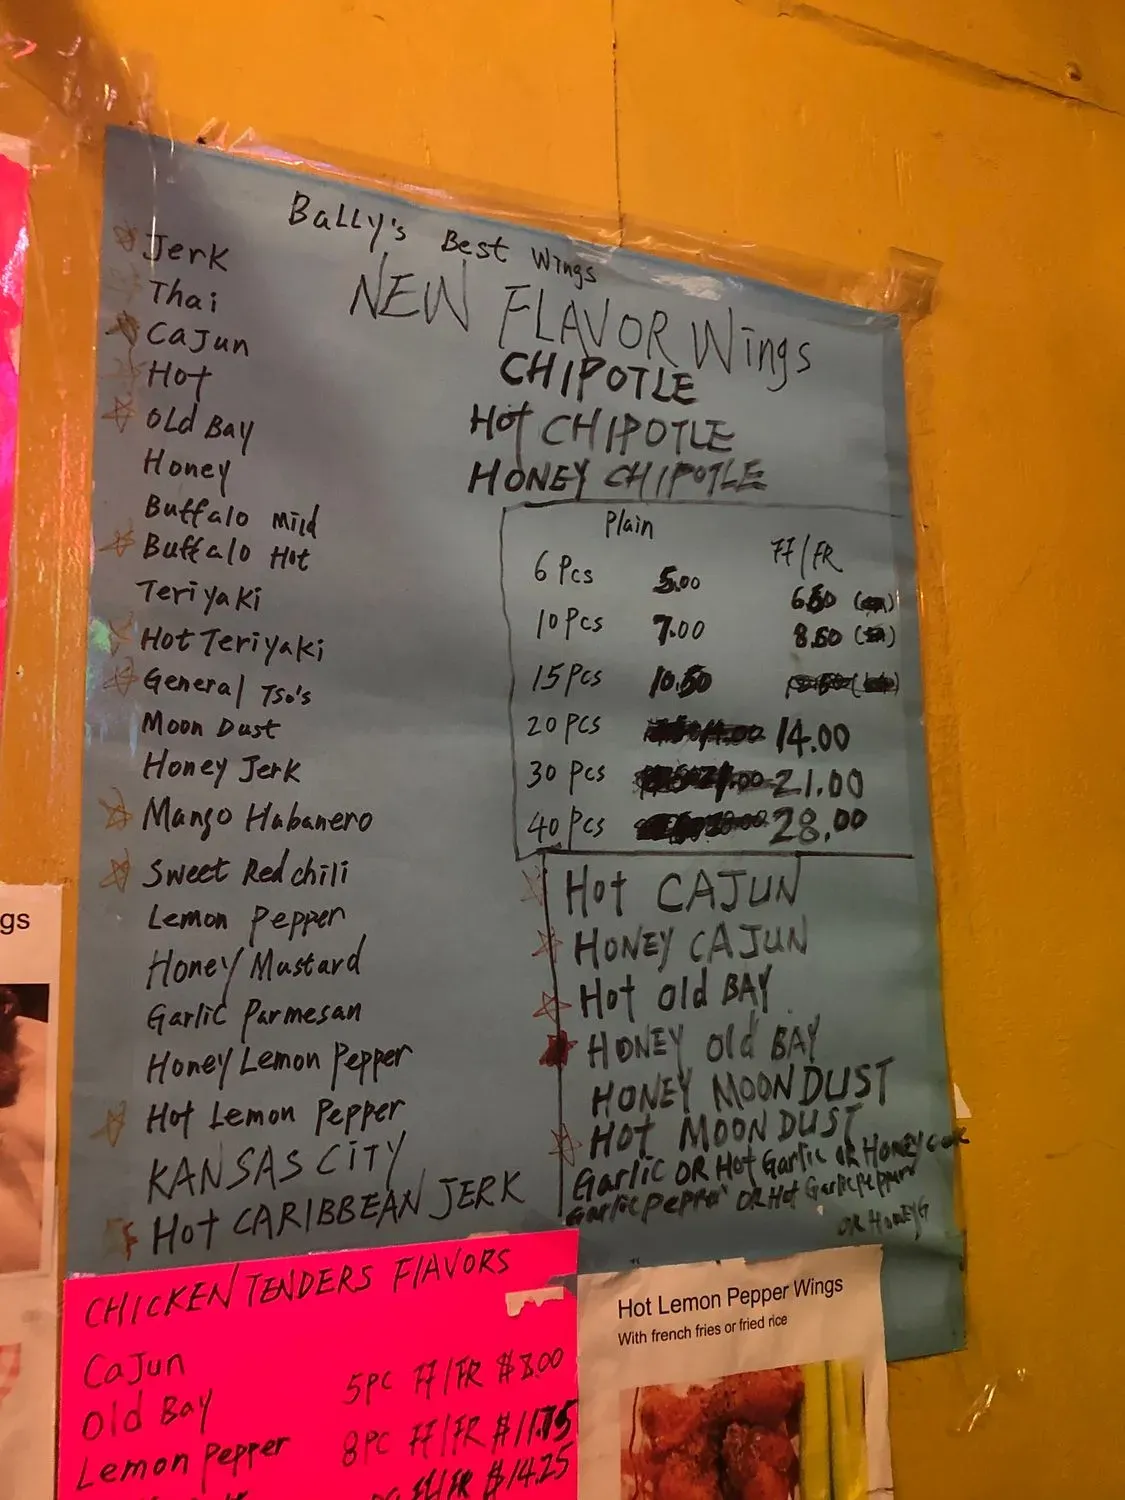 Bally's Best Wings
Jerk
Thai
Cajun
Hot
Old Bay
Honey
Buffalo Mild
Buffalo Hot
Teriyaki
Hot Teriyaki
General Tso's
Moon Dust
Honey Jerk
Mango Habanero
Sweet Red chili
Lemon Pepper
Honey Mustard
Garlic Parmesan
Honey Lemon Pepper
Hot Lemon Pepper
KANSAS CiTY
Hot CARIBBEAN JERK
NEW FLAVOR Wings
CHIPOTLE
Hot CHIPOTLE
HONEY CHIPOTLE
Plain FF/FR
6 Pcs 5.00
10 Pcs 7.00 8.50
15 Pcs 10.50
20 Pcs 14.00
30 Pcs 21.00
40 Pcs 28.00
Hot CAJUN
HONEY CAJUN
Hot Old BAY
HONEY Old BAY
HONEY MOON DUST
HOT MOON DUST
Garlic OR Hot Garlic OR Honey
Garlic pepper OR Hot Garlic pepper
OR HONEY G
CHICKEN TENDERS FlAVORS
CaJun
Old Bay
Lemon Pepper
5PC FF/FR $8.00
8PC FF/FR $11.75
FF/FR $14.25
gs
Hot Lemon Pepper Wings
With french fries or fried rice